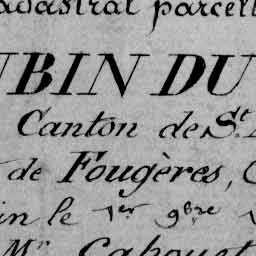 cadastral parcell
UBIN DU
Canton de St.
de Fougères,
in le 1er 9bre
Mr. Cahouet